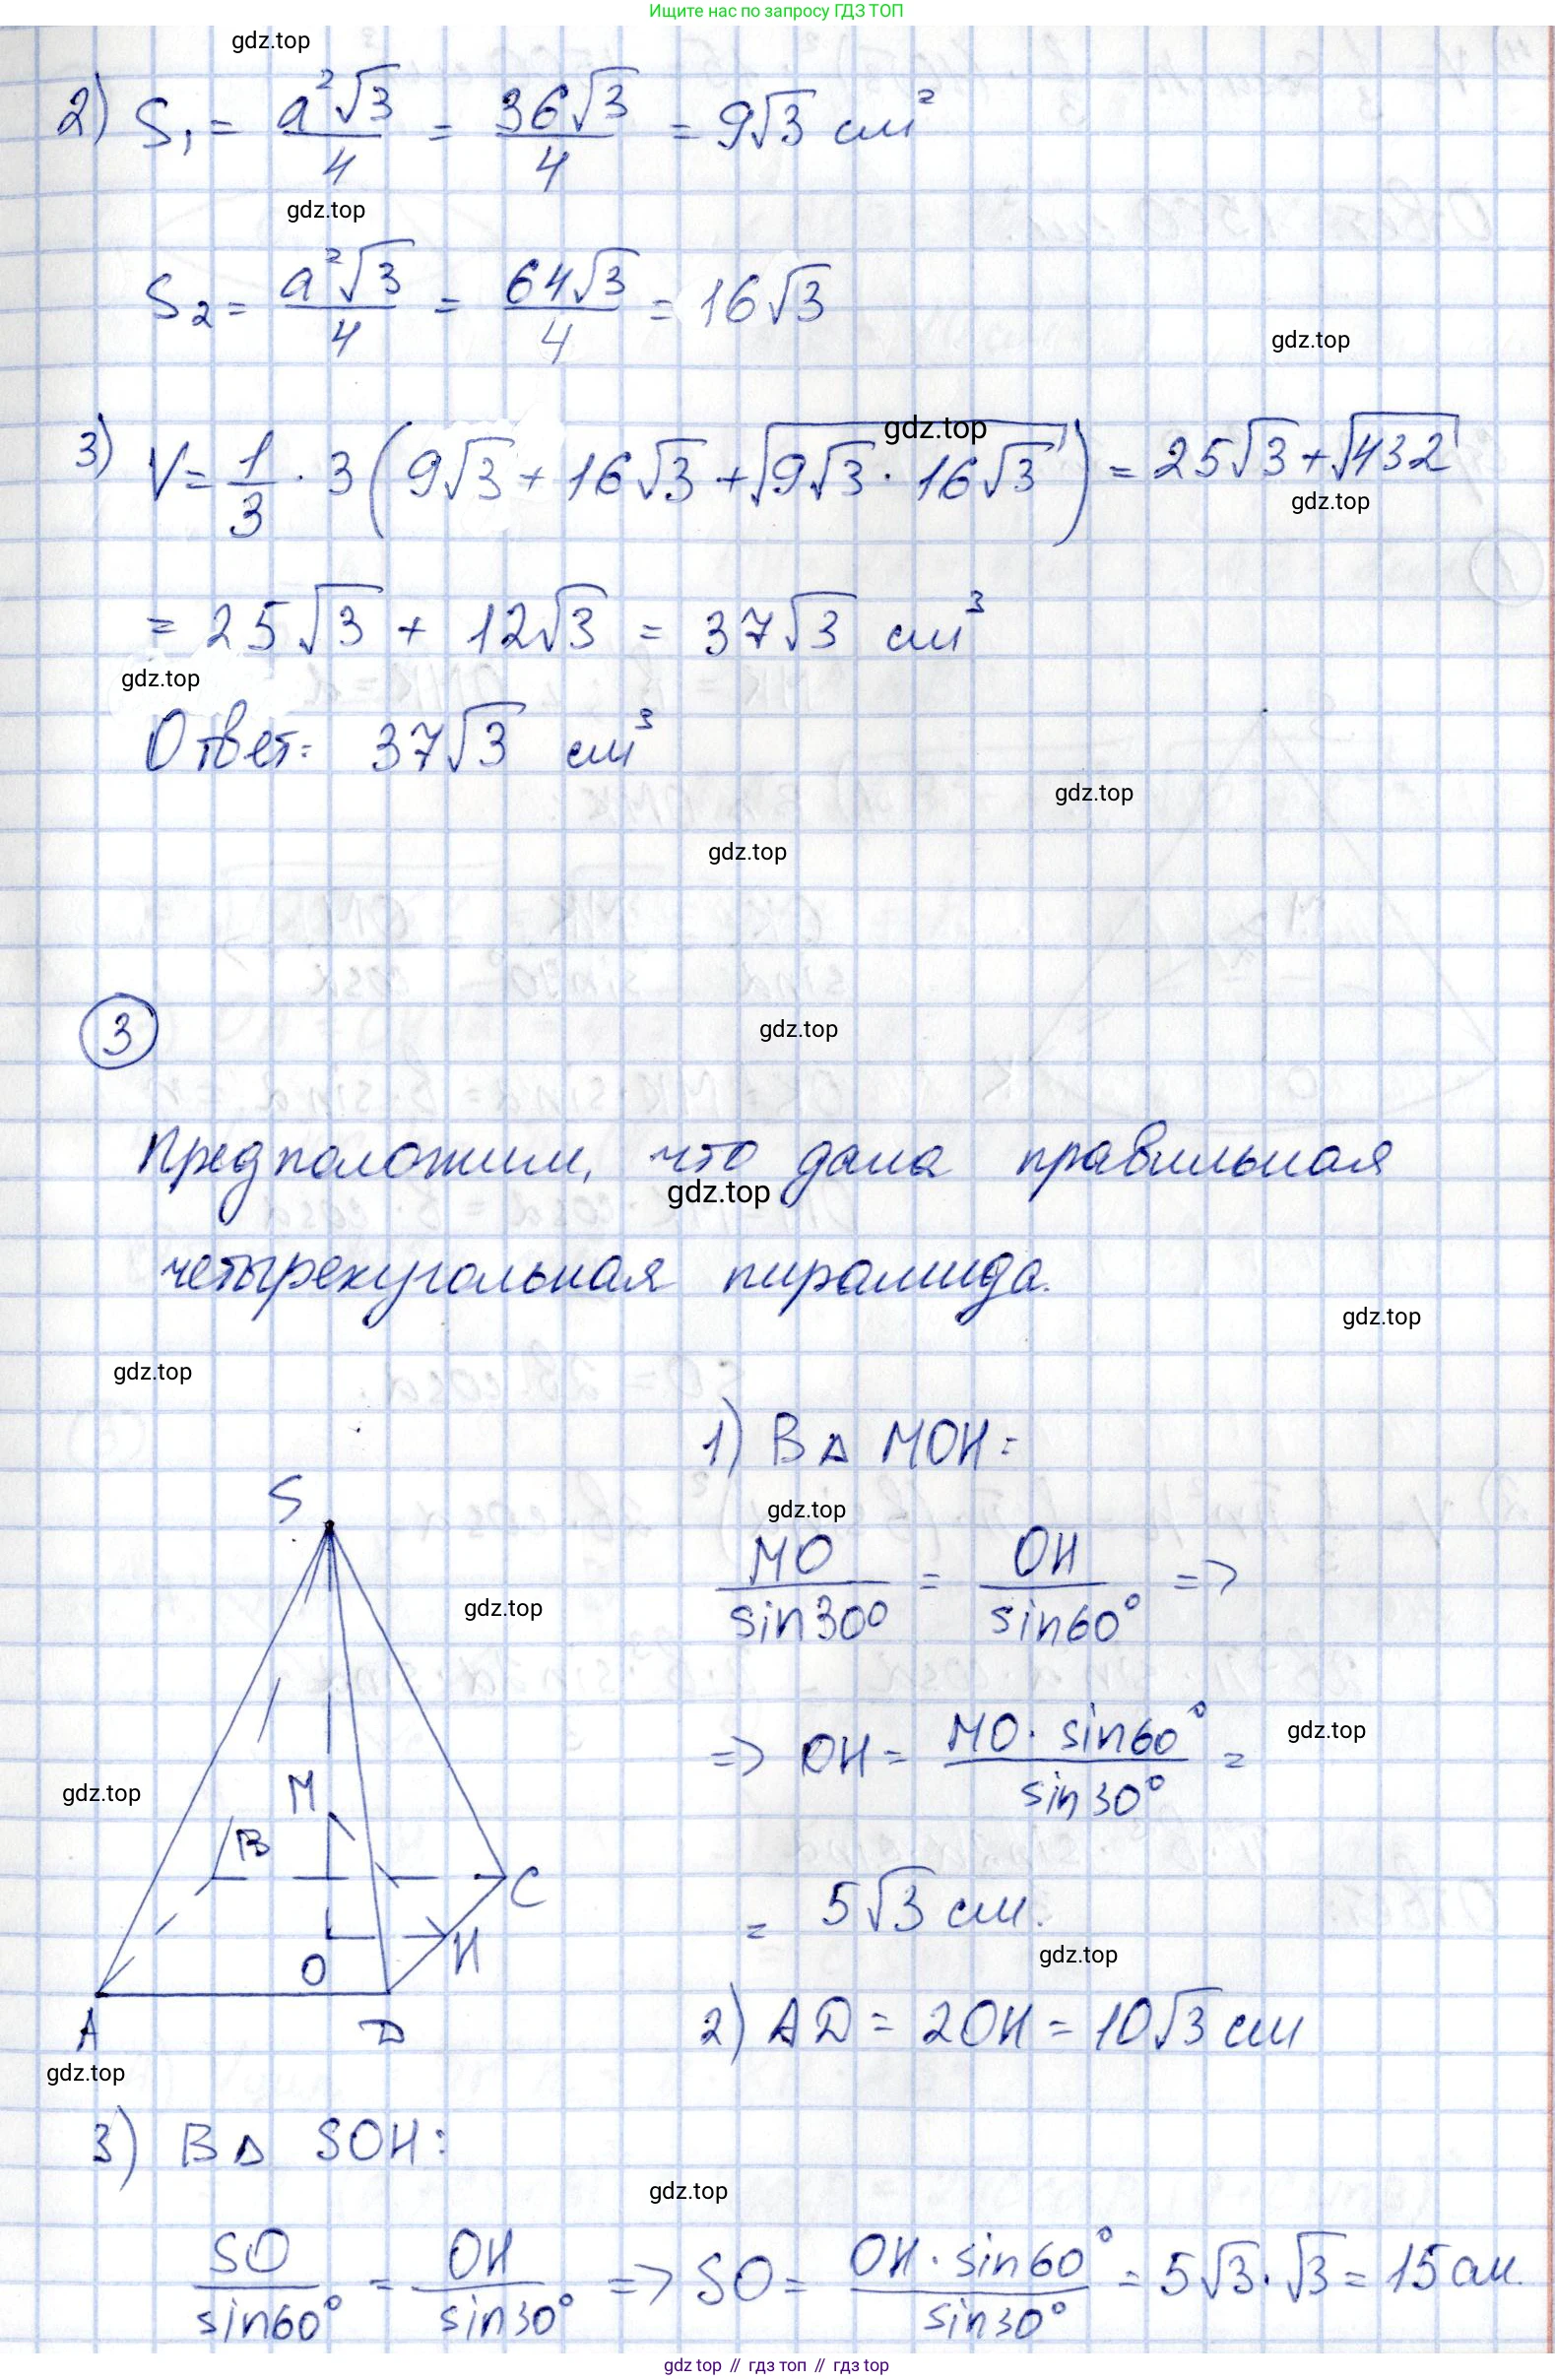 Ищите нас по запросу ГДЗ ТОП
gdz.top
2) S₁ = a²√3/4 = 36√3/4 = 9√3 см²
gdz.top
S₂ = a²√3/4 = 64√3/4 = 16√3
gdz.top
gdz.top
3) V = 1/3 · 3 (9√3 + 16√3 + √(9√3 · 16√3)) = 25√3 + √432
gdz.top
= 25√3 + 12√3 = 37√3 см³
gdz.top
Ответ: 37√3 см³
gdz.top
gdz.top
3
gdz.top
Предположим, что дана правильная
gdz.top
четырехугольная пирамида.
gdz.top
gdz.top
1) В Δ MOH:
S
gdz.top
MO/sin30° = OH/sin60° =>
gdz.top
=> OH = MO · sin60°/sin30° =
gdz.top
gdz.top
M
B
C
= 5√3 см.
H
gdz.top
O
A
D
2) AD = 2OH = 10√3 см
gdz.top
3) В Δ SOH:
gdz.top
SO/sin60° = OH/sin30° => SO = OH · sin60°/sin30° = 5√3 · √3 = 15 см.
gdz top // гдз топ // гдз top